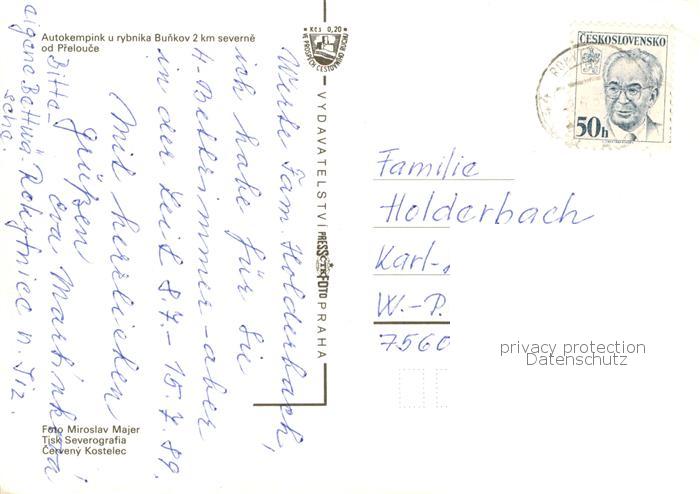 Autokempink u rybníka Buňkov 2 km severně
od Přelouče
Kčs 0,20
VE PROSPĚCH CESTOVNÍHO RUCHU
Werte Fam. Holderbach,
ich habe für Sie
4-Bettzimmer - aber
in der Zeit 8.7. - 15.7.89.
Mit herzlichen
Grüßen
Eva Martinková
Rokytnice n. Jiz.
Bitte
eigene Bettwä-
sche.
VYDAVATELSTVÍ PRESSFOTO PRAHA
Foto Miroslav Majer
Tisk Severografia
Červený Kostelec
ČESKOSLOVENSKO
50h
Familie
Holderbach
Karl-
W.-P.
7560
privacy protection
Datenschutz